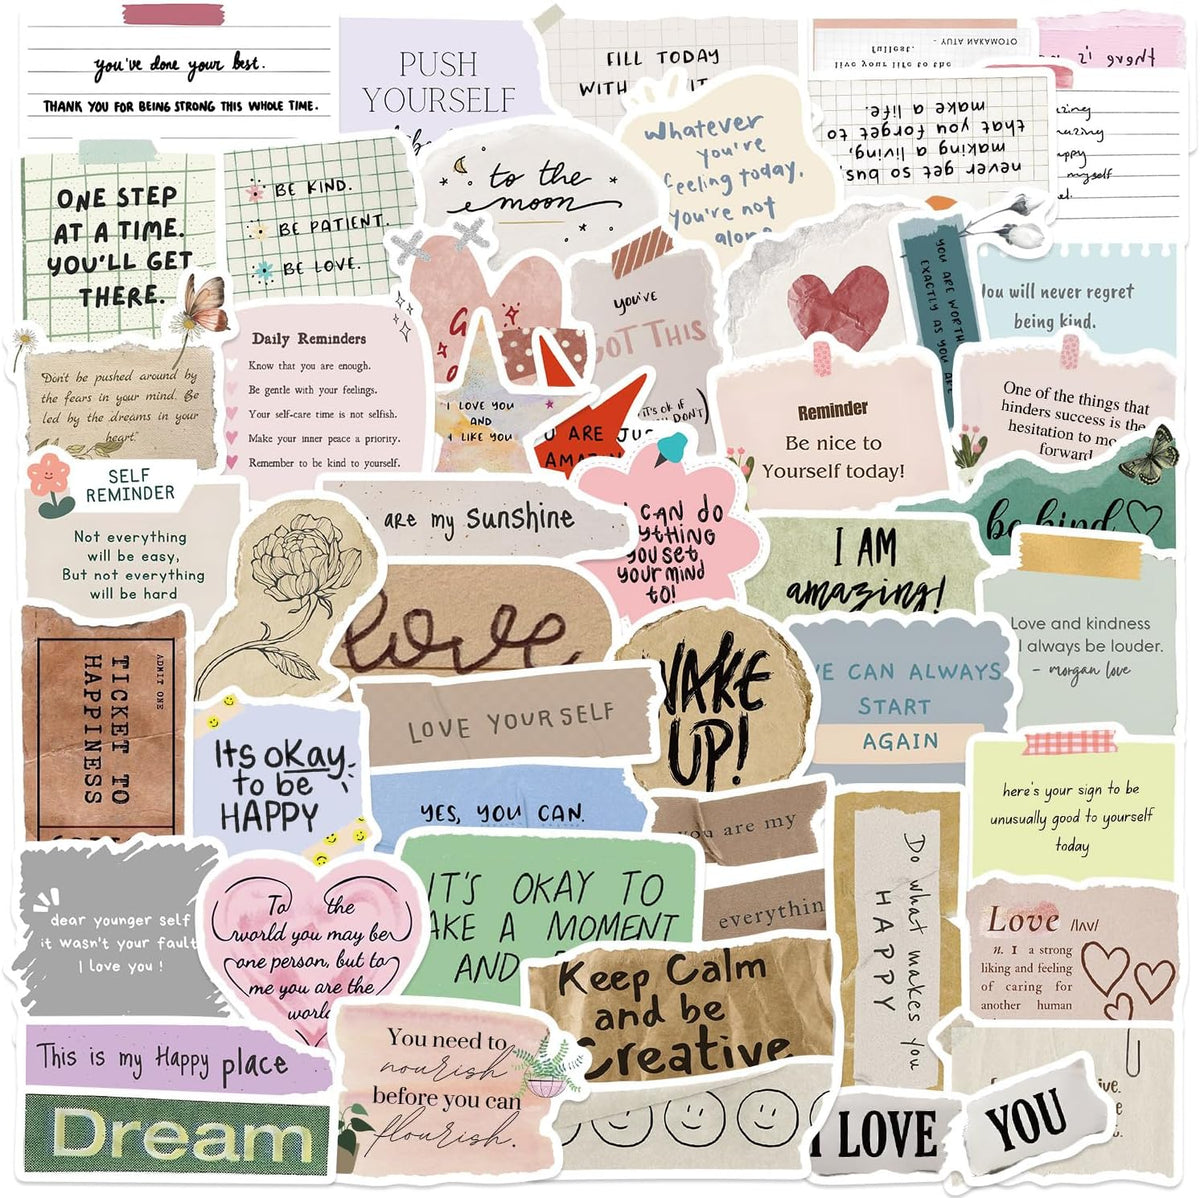 you've done your best.
THANK YOU FOR BEING STRONG THIS WHOLE TIME.
PUSH
YOURSELF
FILL TODAY
WITH
fullest.
- YUTA NAKAMOTO
live your life to the
never get so busy
making a living,
that you forget to
make a life.
myself
Whatever
you're
feeling today,
you're not
alone
ONE STEP
AT A TIME.
YOU'LL GET
THERE.
BE KIND.
BE PATIENT.
BE LOVE.
to the
moon
you've
GOT THIS
it's ok if
DON'T)
YOU ARE WORTH
EXACTLY AS YOU ARE
You will never regret
being kind.
Don't be pushed around by
the fears in your mind. Be
led by the dreams in your
heart."
Daily Reminders
Know that you are enough.
Be gentle with your feelings.
Your self-care time is not selfish.
Make your inner peace a priority.
Remember to be kind to yourself.
I LOVE YOU
AND
I LIKE YOU
U ARE JUS
AMAZ
Reminder
Be nice to
Yourself today!
One of the things that
hinders success is the
hesitation to mo
forward
SELF
REMINDER
Not everything
will be easy,
But not everything
will be hard
are my sunshine
I CAN DO
YTHING
YOU SET
YOUR MIND
TO!
I AM
amazing!
be kind
Love and kindness
will always be louder.
- morgan love
love
WAKE
UP!
WE CAN ALWAYS
START
AGAIN
ADMIT ONE
TICKET TO
HAPPINESS
LOVE YOURSELF
Its okay
to be
HAPPY
YES, YOU CAN.
you are my
everythin
here's your sign to be
unusually good to yourself
today
Do what makes you
HAPPY
dear younger self
it wasn't your fault
I love you !
To the
world you may be
one person, but to
me you are the
world
IT'S OKAY TO
TAKE A MOMENT
AND
Keep Calm
and be
Creative
Love /lʌv/
n. 1 a strong
liking and feeling
of caring for
another human
This is my Happy place
Dream
You need to
nourish
before you can
flourish.
I LOVE
YOU